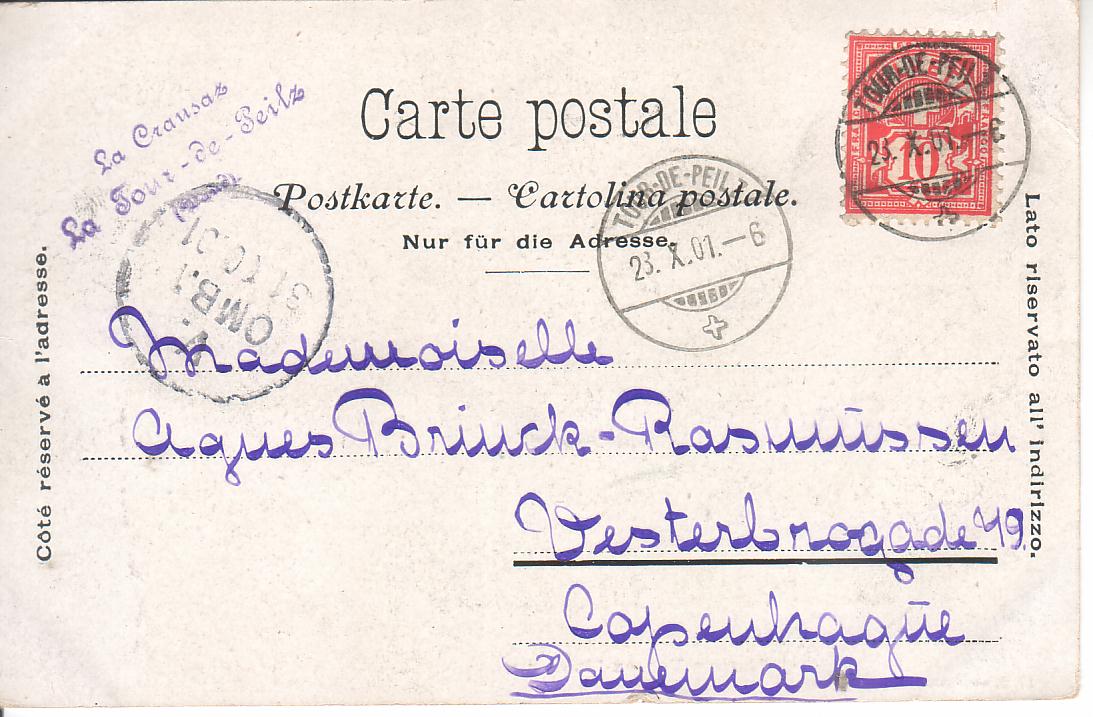 Carte postale
Postkarte. — Cartolina postale.
Nur für die Adresse.
Côté réservé à l'adresse.
Lato riservato all' indirizzo.
La Crausaz
La Tour-de-Peilz
(Vaud)
FRANCO
10
TOUR-DE-PEILZ
23.X.01.–6
TOUR-DE-PEILZ
23.X.01.–6
OMB.1
31 10 01
Mademoiselle
Agnes Brinck-Rasmüssen
Vesterbrogade 49.
Copenhague
Danemark